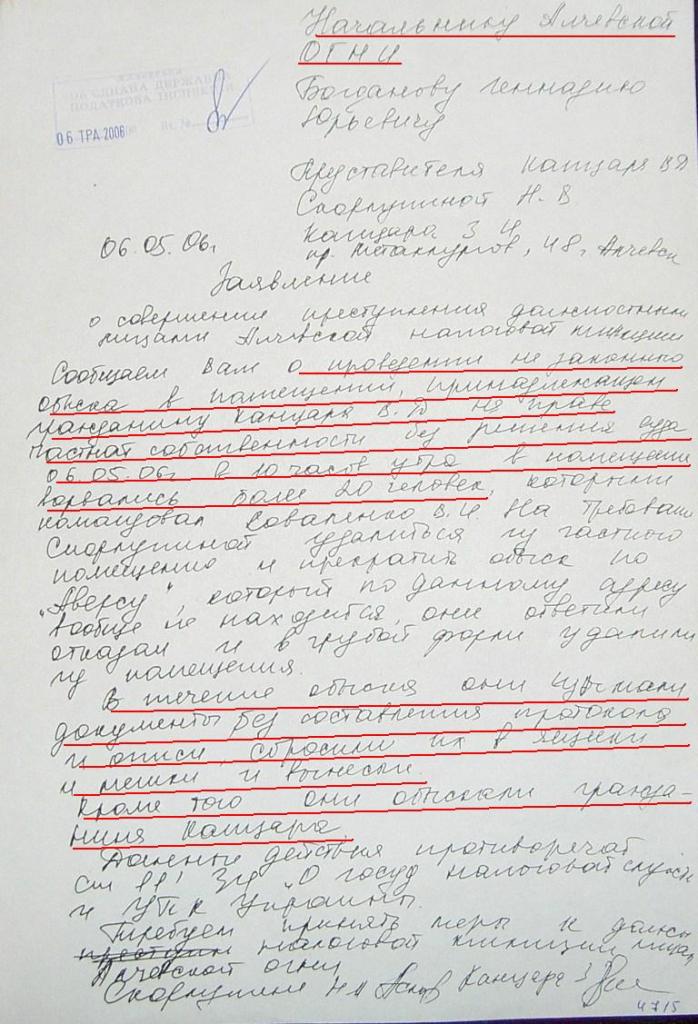 Начальнику Алчевской
ОГНИ
Богданову Геннадию
Юрьевичу
ОБ'ЄДНАНА ДЕРЖАВНА
ПОДАТКОВА ІНСПЕКЦІЯ
06 ТРА 2006
Вх. №
Представителя Канцара В Д
Скорлупиной Н. В
Канцара З И.
пр. Металлургов, 48 г Алчевск
06.05.06г
Заявление
о совершении преступления должностными
лицами Алчевской налоговой милиции
Сообщаем Вам о проведении не законного
обыска в помещении, принадлежащем
гражданину Канцара В.Д на праве
частной собственности без решения суда
06.05.06г в 10 часов утра в помещение
ворвались более 20 человек, которыми
командовал Коваленко В.И. На требован
Скорлупиной удалиться из частного
помещению и прекратить обыск по
"Аверсу", который по данному адресу
вообще не находится, они ответили
отказам и в грубой форми удалили
из помещения.
В течение обыска они изымали
документы без составления протокола
и описи, сбросили их в ящики
и мешки и вынесли.
Кроме того они обыскали гражда-
нина Канцара.
Данные действия противоречат
ст 11' ЗУ "О госуд налоговой службе
и УПК Украины.
Требуем принять меры к должн
налоговой милиции лицам
Алчевской огни
Скорлупина Канцара З
47/5